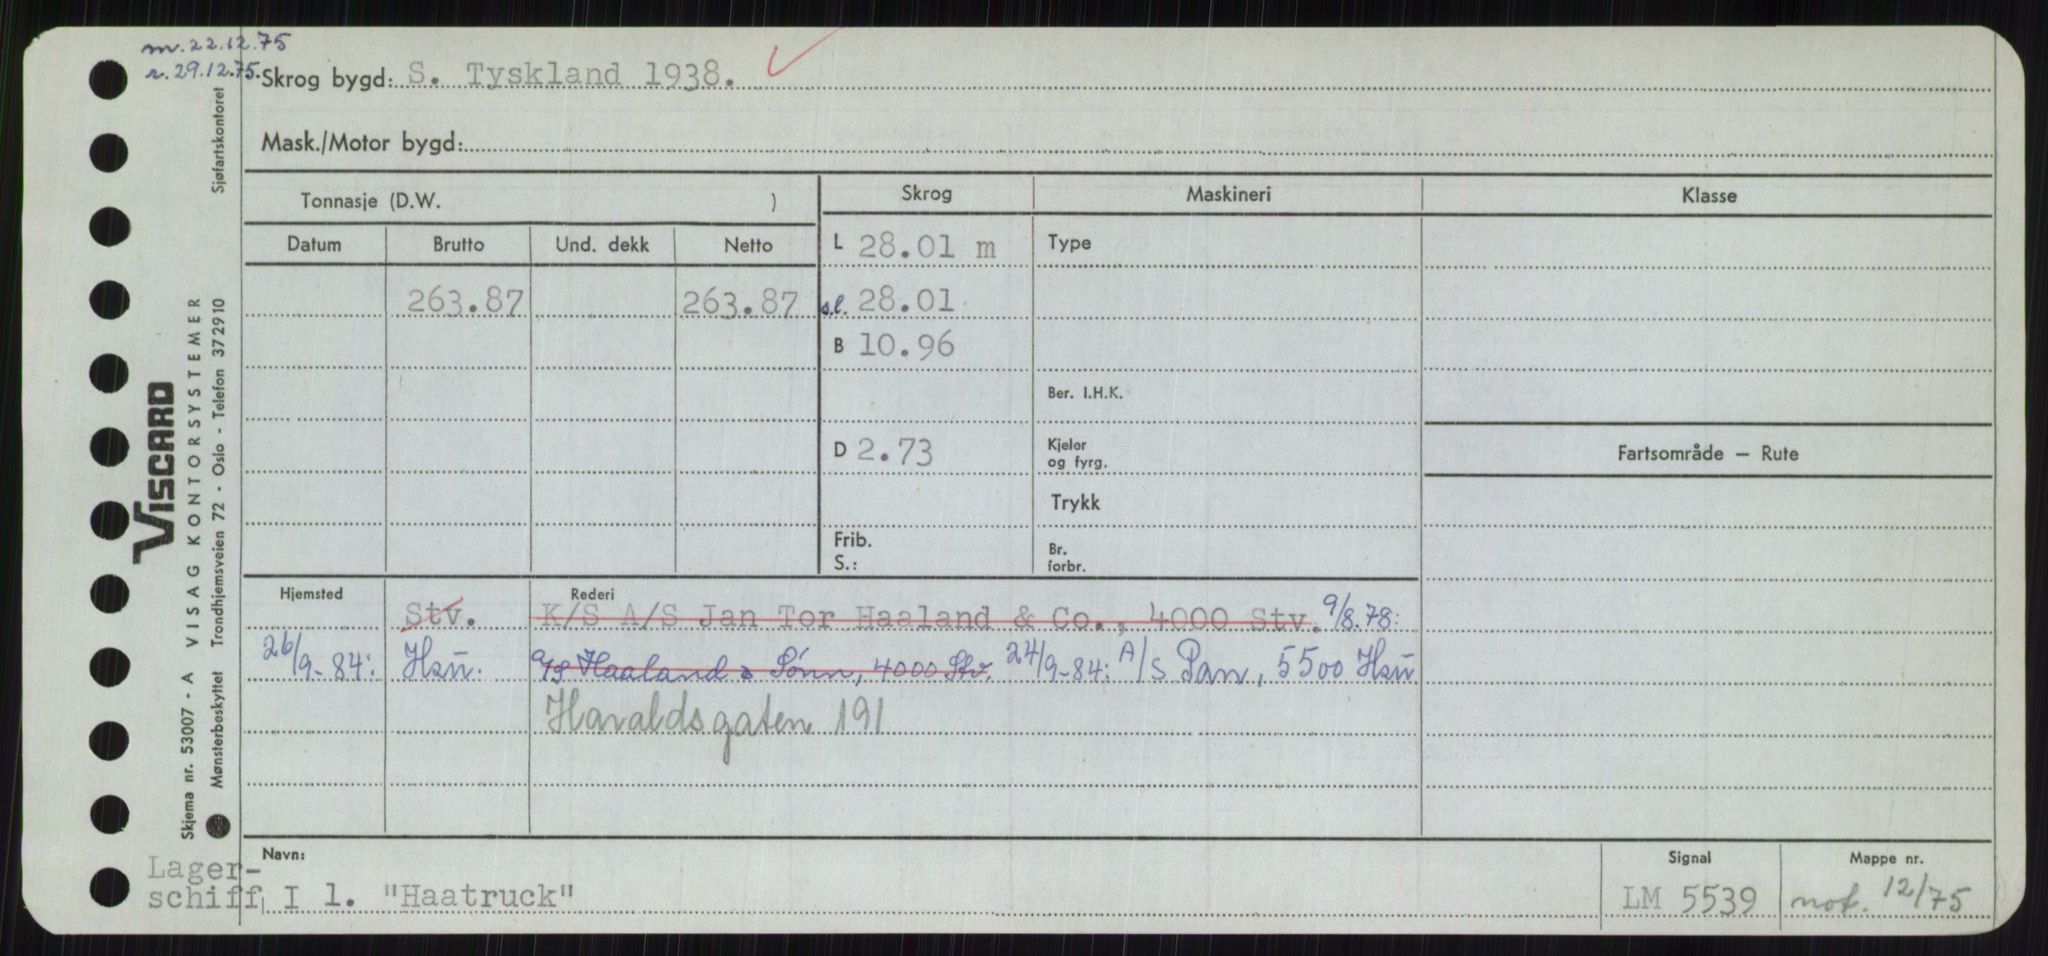 m. 22.12.75
r. 29.12.75.
Skrog bygd: S. Tyskland 1938.
Mask./Motor bygd:
Tonnasje (D.W. )
Skrog
Maskineri
Klasse
Datum
Brutto
Und. dekk
Netto
L 28.01 m
Type
263.87
263.87
s.l. 28.01
B 10.96
Ber. I.H.K.
D 2.73
Kjeler
og fyrg.
Fartsområde — Rute
Trykk
Frib.
S.:
Br.
forbr.
Hjemsted
Rederi
Stv.
K/S A/S Jan Tor Haaland & Co., 4000 Stv. 9/8.78:
26/9-84: Hsu.
A/S Haaland & Sønn, 4000 Stv. 24/9-84: A/S Pan, 5500 Hsu
Haraldsgaten 191
Navn:
Signal
Mappe nr.
Lager-
schiff I l. "Haatruck"
LM 5539
not. 12/75
VISCARD
Skjema nr. 53007 - A VISAG KONTORSYSTEMER
Mønsterbeskyttet Trondhjemsveien 72 - Oslo - Telefon 372910 Sjøfartskontoret